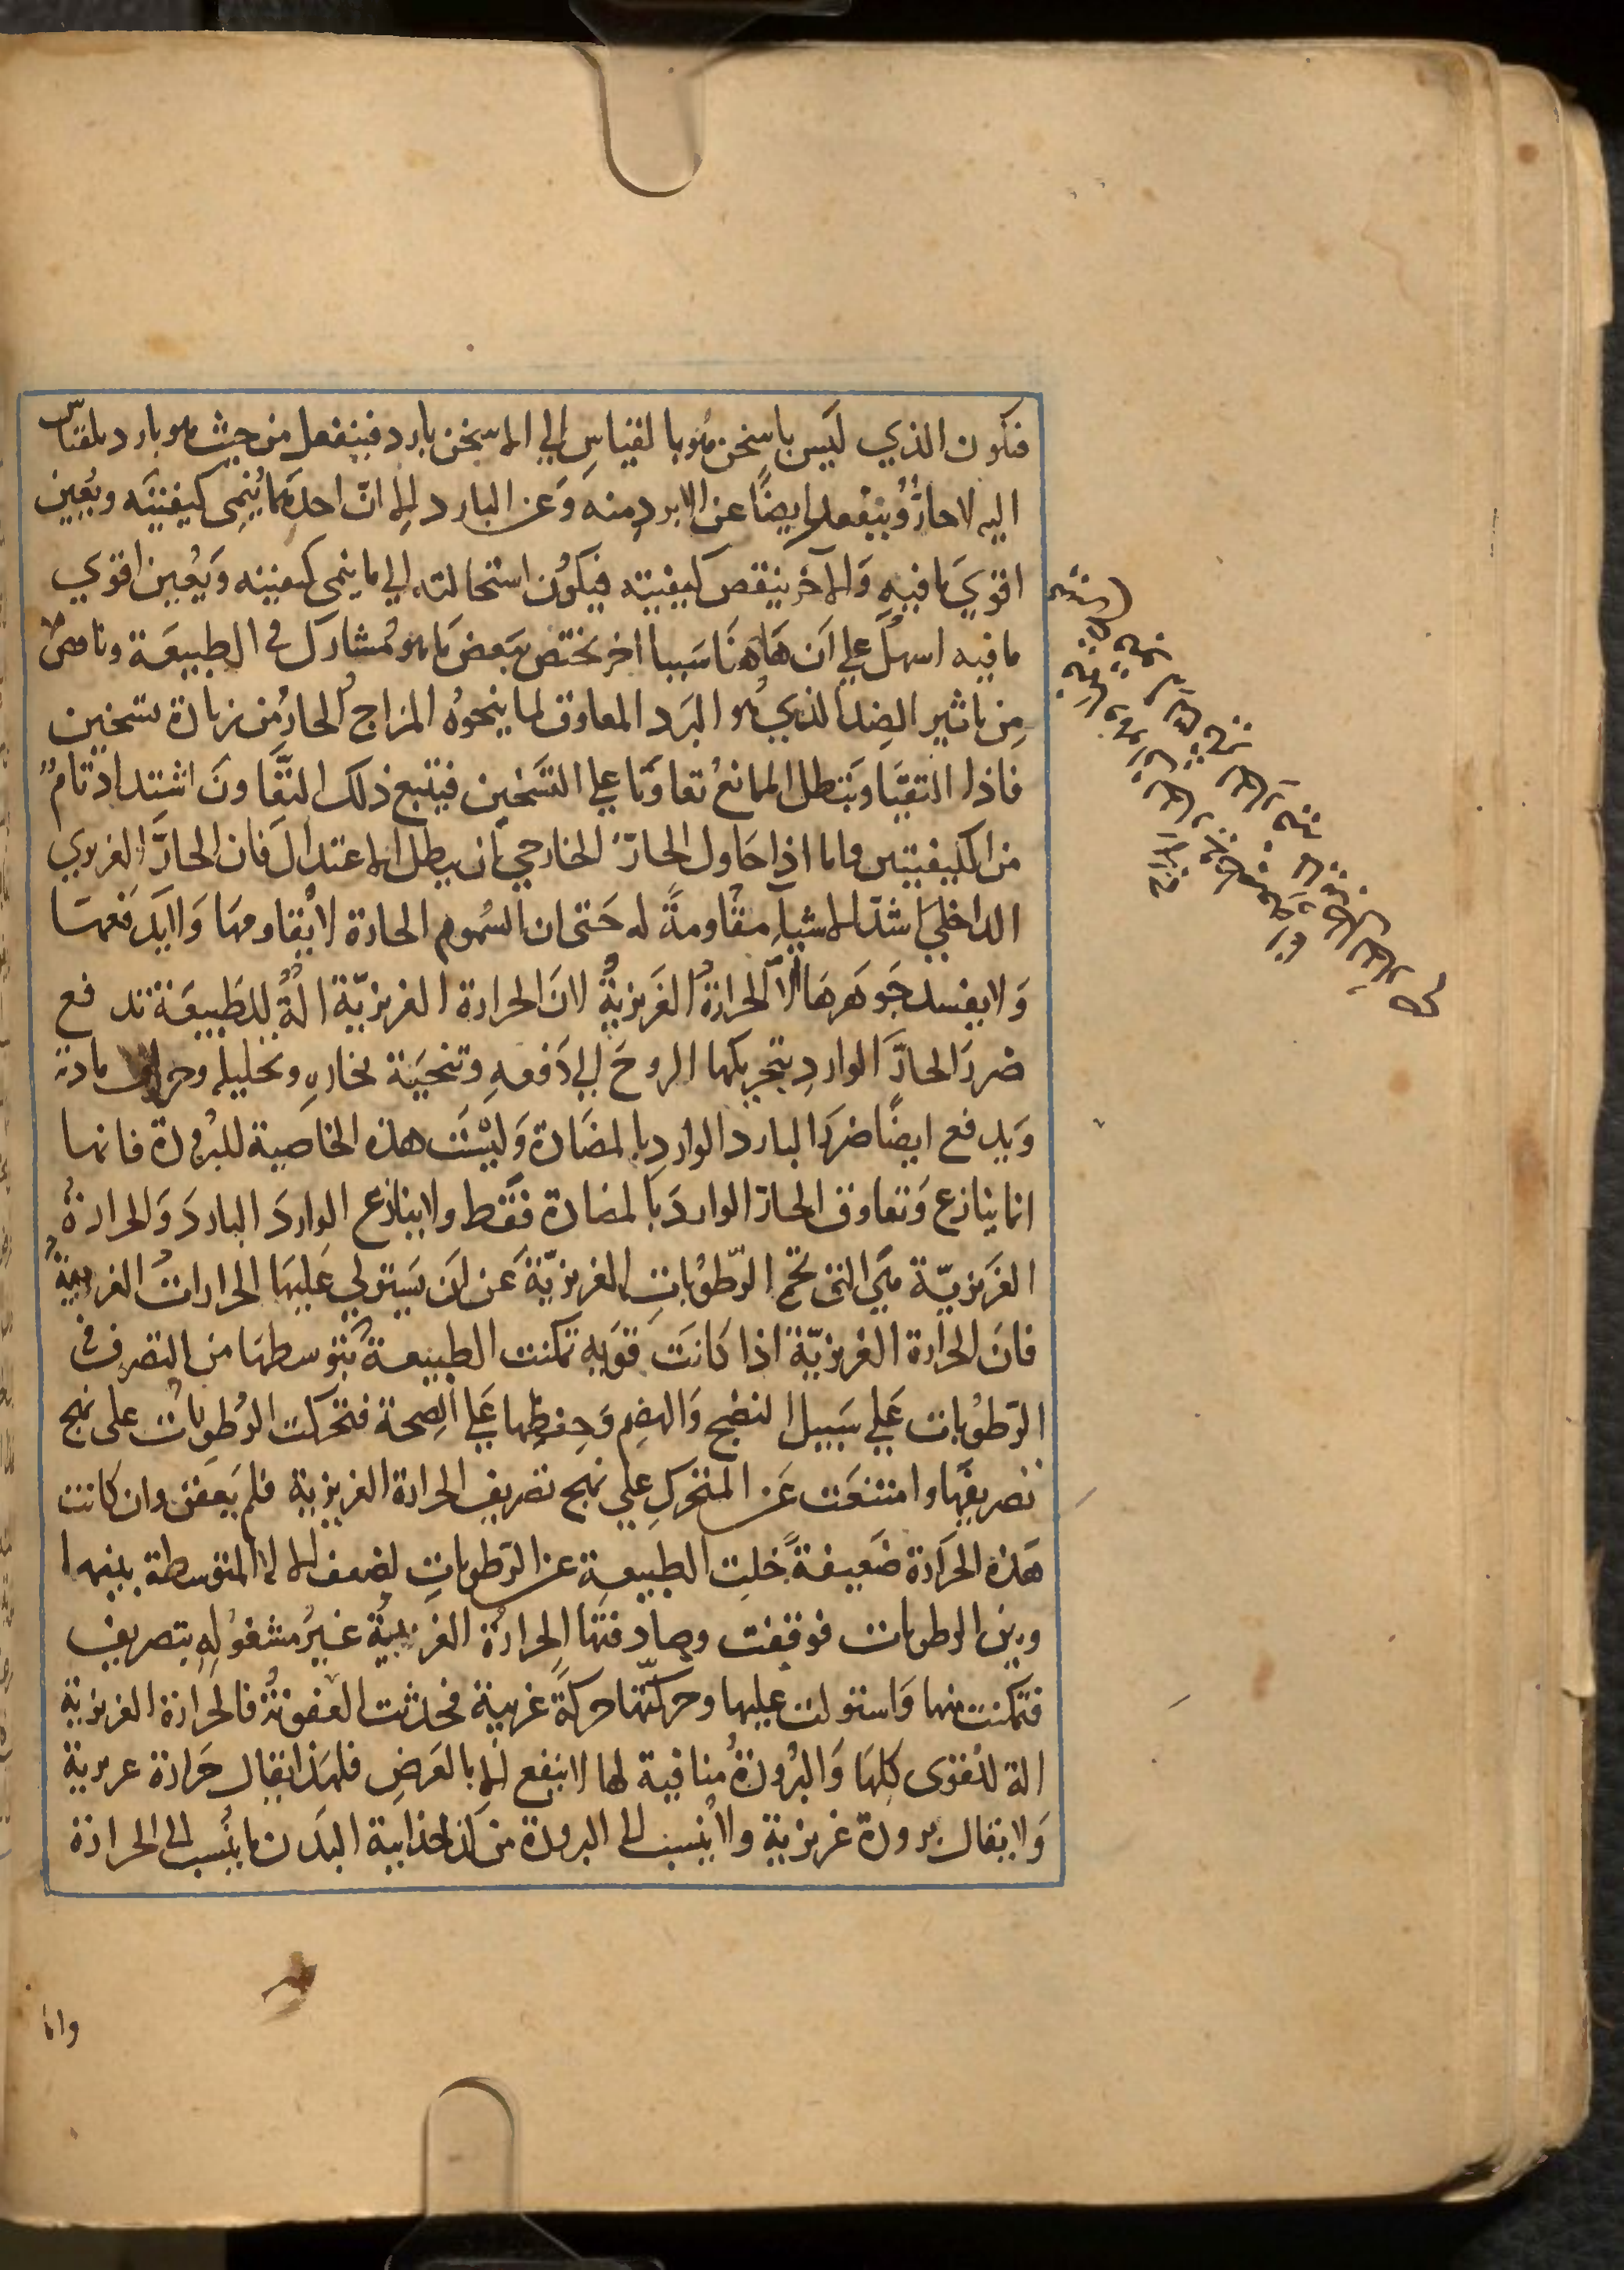 فيكون الذي ليس باسخن هو بالقياس الي الاسخن بارد فينفعل من حيث هو بارد بالقياس
اليه لا حارٌّ وينفعل ايضًا عن الابرد منه وَعن البارد الا انّ احدهما يُنمى كيفيته ويُعين
اقويَ ما فيهِ وَالآخر ينقص كيفيته فيكون استحالته الي ما ينمى كيفيته وَيُعين اقوي
ما فيه اسهلَ علي اَن هَاهنَا سَببا اخر يختص ببَعض مَا هو مُشارك في الطبيعَة وناقص
مِن تاثير الضِد الذي هُو البَرد المعاوق لما ينحوهُ المزاج الحارُ من زيادة تسخين
فاذا التقيَا وَبَطل المانعُ تعاوَنا علي التسَخين فيتبع ذلك التعَاونَ اشتداد تامٌ
من الكيفيتين واما اذا حَاول الحارّ الخارجي ان يبطل الاعتدالَ فان الحارَّ الغريزي
الداخليَ اشدّ الاشيآءِ مقاومةً له حَتى ان السُموم الحارة لا يُقاومهَا وَلا يَدفعهَا
وَلا يفسد جَوهَرهَا الا الحرارةُ الغَريزيةُ لانَ الحرارة الغريزيّة الةٌ للطَبيعَة تدفع
ضررَ الحارَّ الواردِ بتحريكها الروحَ الي دَفعهِ وتنحيَة بخارهِ وتحليله و مادته
وَيدفع ايضًا ضررَ البارد الوارد بالمضَادة وَليسَت هذه الخاصية للبرُودة فانها
انما ينازع وَتعاوق الحارّ الواردَ بالمضادة فقَط ولا ينازع الواردَ الباردَ وَالحرارةُ
الغَريزيّة هيَ التى تحمى الرّطوُباتِ الغريزيّةَ عَن اَن يَستولي عَليهَا الحراراتُ الغريبةُ
فانَ الحرارة الغريزيّة اذا كانَت قويَه تمكنت الطبيعة بتوسطهَا من التصرف في
الرَطوُبات عَلي سَبيل النضج وَالهضِم وَحِفظِها عَلي الصِحة فتحركت الرُطوبَاتُ على نهج
تصريفهَا وامتنعَت عَن المتحرك علي نهج تصريف الحرارة الغريبة فلم يَعفن وان كانت
هَذه الحَرارة ضَعيفةً خلت الطبيعة عن الرَطوبات لضعف الآلة المتوسطة بينها
وبين الرطوبات فوقفت وصادفتها الحرارةُ الغريبةُ غيرُ مشغولةِ بتصريف
فتمكنت منها وَاستولت عليها وحركتها حركةً غريبة فحدثت العفونةُ فالحرارة الغريزية
الة للقوى كلهَا وَالبرُودةُ منافية لها لا ينفع الا بالعَرضِ فلهَذا يقال حَرارة غريزية
وَلا يقال برودة غريزية ولا يُنسب الى البرودة من كذخدايية البدَن ما يُنسب الى الحرارة
واما